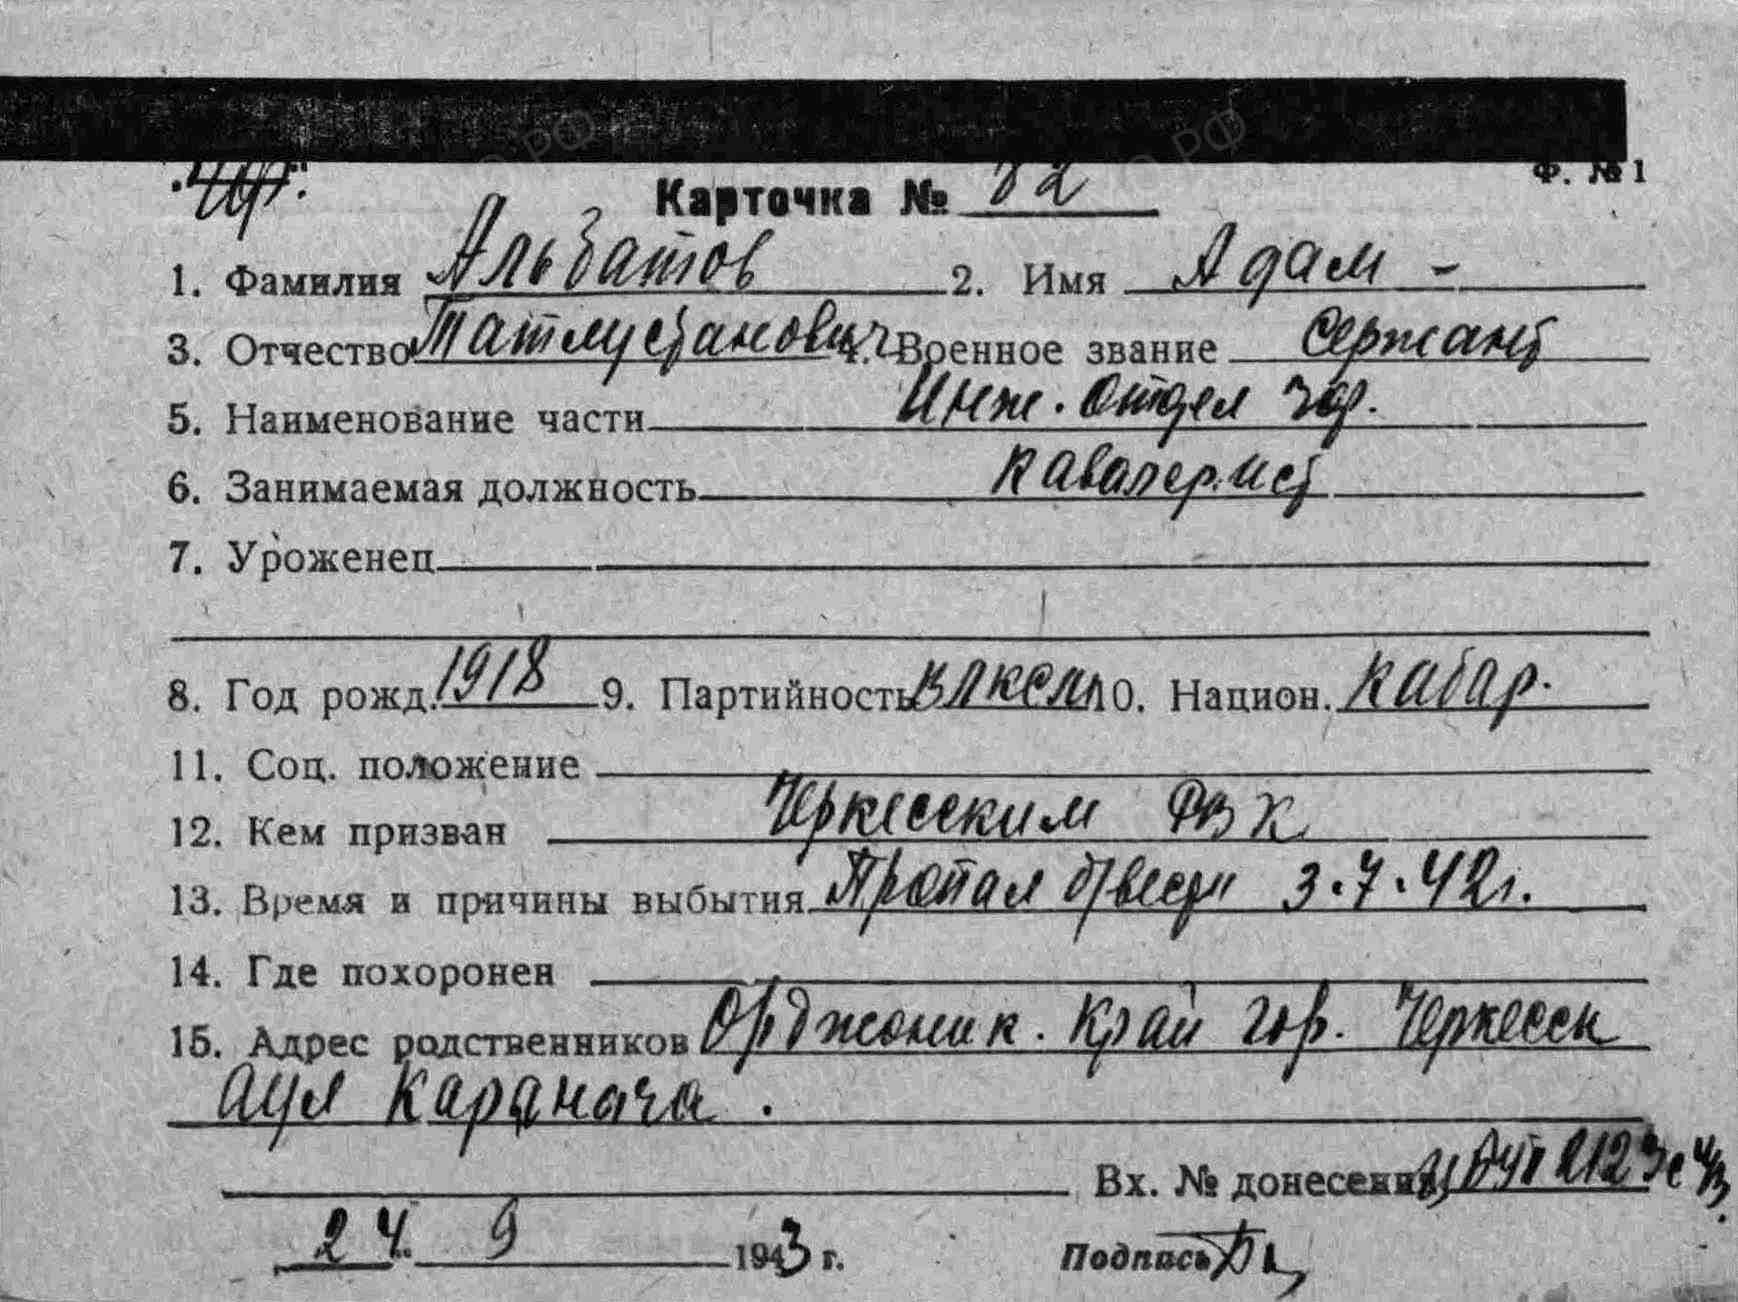 Ф. № 1
Карточка № 82
1. Фамилия Альботов 2. Имя Адам -
3. Отчество Татлустанович 4. Военное звание Сержант
5. Наименование части Инж. отдел
6. Занимаемая должность Кавалерист
7. Уроженец
8. Год рожд. 1918 9. Партийность ВЛКСМ 10. Национ. Кабар.
11. Соц. положение
12. Кем призван Черкесским РВК
13. Время и причины выбытия Пропал б/вести 3.7.42 г.
14. Где похоронен
15. Адрес родственников Орджоник. край гор. Черкесск
аул
Вх. № донесения
24. 9 1943 г. Подпись